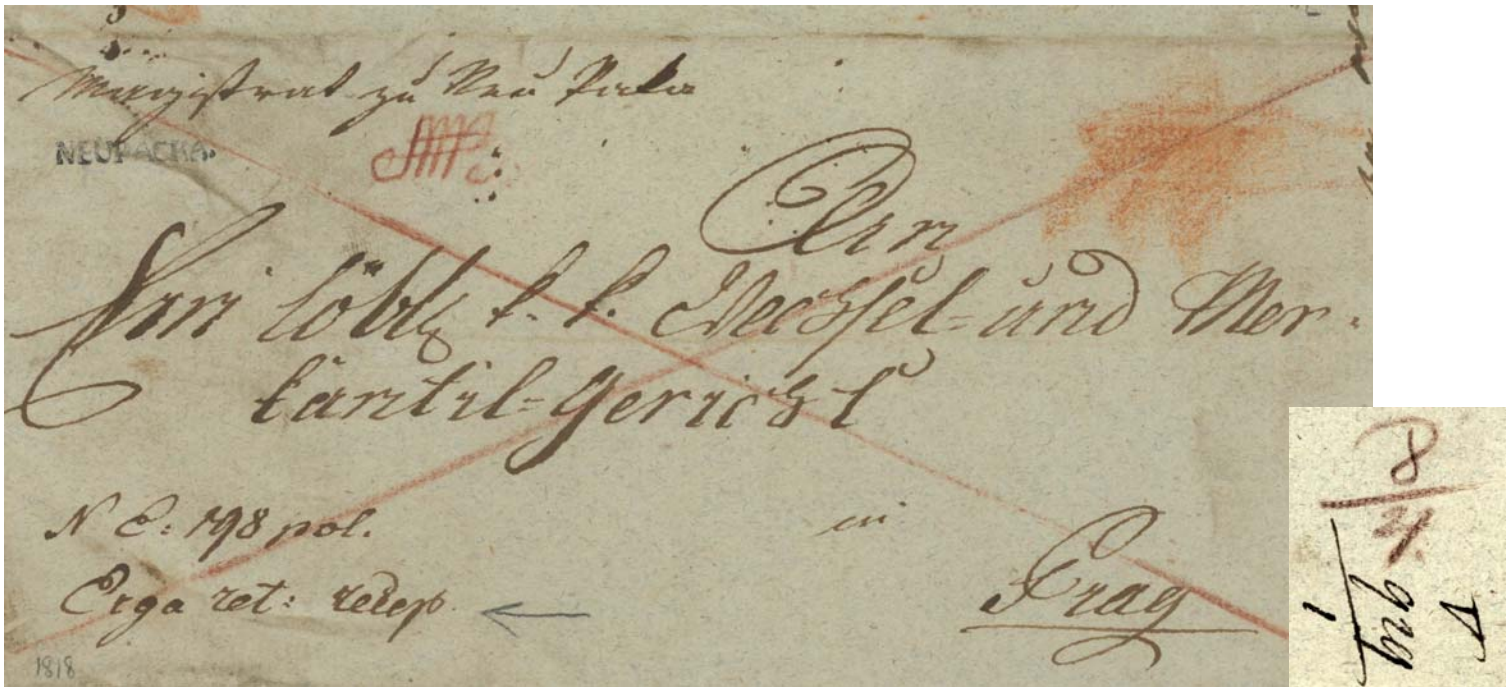 Magistrat zu Neu Paka
NEUPACKA.
Dem
Ein löbl k. k. Wechsel= und Mer=
kantil=Gericht
N E: 798 pol.
in
Erga ret: recep.
Prag
1818
8